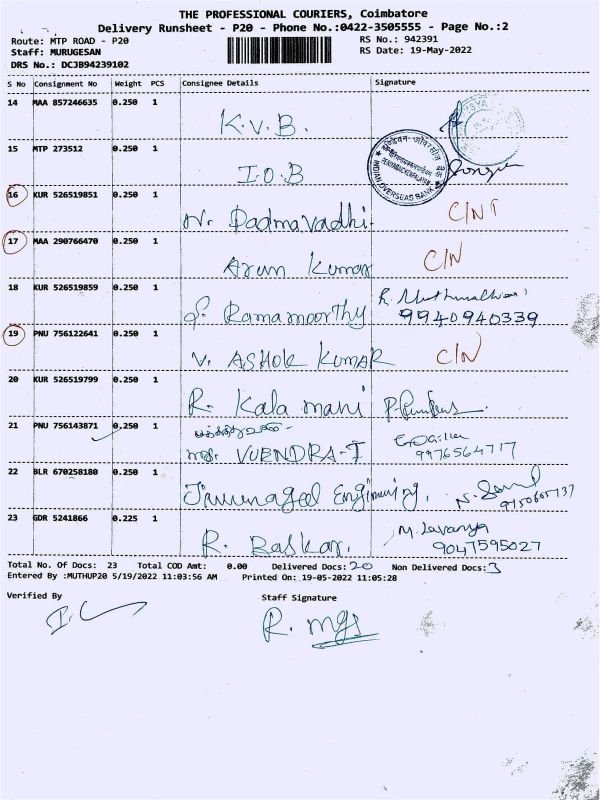 THE PROFESSIONAL COURIERS, Coimbatore
Delivery Runsheet - P20 - Phone No.:0422-3505555 - Page No.:2
Route: MTP ROAD - P20
RS No.: 942391
Staff: MURUGESAN
RS Date: 19-May-2022
DRS No.: DCJB94239102
S No Consignment No Weight PCS Consignee Details Signature
14 MAA 857246635 0.250 1
K.V.B.
15 MTP 273512 0.250 1
I.O.B
INDIAN OVERSEAS BANK
16 KUR 526519851 0.250 1
N. Padmavadhi. C/NT
17 MAA 290766470 0.250 1
Arun Kumar C/N
18 KUR 526519859 0.250 1
S. Ramamoorthy
9940940339
19 PNU 756122641 0.250 1
V. ASHOK KUMAR C/N
20 KUR 526519799 0.250 1
R. Kala mani
21 PNU 756143871 0.250 1
VUENDRA-T
9976564717
22 BLR 670258180 0.250 1
23 GDR 5241866 0.225 1
R. Baskar. M. Lavanya
9047595027
Total No. Of Docs: 23 Total COD Amt: 0.00 Delivered Docs: 20 Non Delivered Docs: 3
Entered By :MUTHUP20 5/19/2022 11:03:56 AM Printed On: 19-05-2022 11:05:28
Verified By Staff Signature